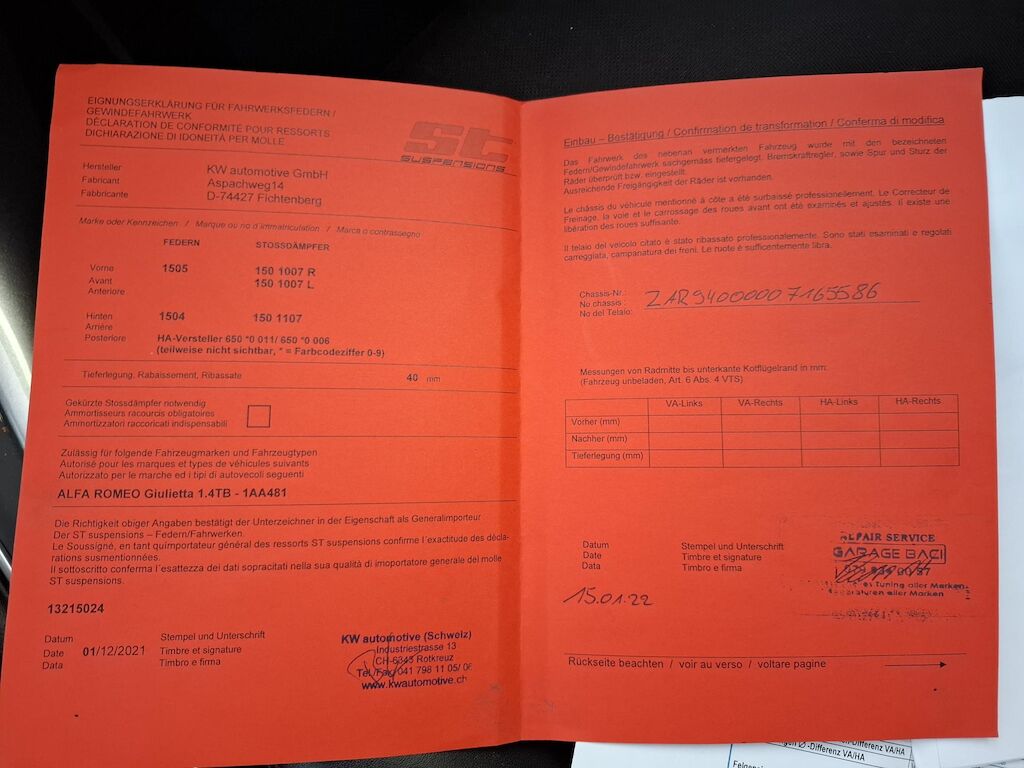 EIGNUNGSERKLÄRUNG FÜR FAHRWERKSFEDERN /
GEWINDEFAHRWERK
DÉCLARATION DE CONFORMITÉ POUR RESSORTS
DICHIARAZIONE DI IDONEITÀ PER MOLLE
ST
SUSPENSIONS
Hersteller KW automotive GmbH
Fabricant Aspachweg14
Fabbricante D-74427 Fichtenberg
Marke oder Kennzeichen / Marque ou no d'immatriculation / Marca o contrassegno
FEDERN STOSSDÄMPFER
Vorne 1505 150 1007 R
Avant 150 1007 L
Anteriore
Hinten 1504 150 1107
Arriére
Posteriore HA-Versteller 650 *0 011/ 650 *0 006
(teilweise nicht sichtbar, * = Farbcodeziffer 0-9)
Tieferlegung, Rabaissement, Ribassate 40 mm
Gekürzte Stossdämpfer notwendig
Ammortisseurs racourcis obligatoires
Ammortizzatori raccoricati indispensabili
Zulässig für folgende Fahrzeugmarken und Fahrzeugtypen
Autorisé pour les marques et types de véhicules suivants
Autorizzato per le marche ed i tipi di autovecoli seguenti
ALFA ROMEO Giulietta 1.4TB - 1AA481
Die Richtigkeit obiger Angaben bestätigt der Unterzeichner in der Eigenschaft als Generalimporteur
Der ST suspensions – Federn/Fahrwerken.
Le Soussigné, en tant qu'importateur général des ressorts ST suspensions confirme l´exactitude des décla-
rations susmentionnées.
Il sottoscritto conferma l´esattezza dei dati sopracitati nella sua qualità di imoportatore generale del molle
ST suspensions.
13215024
Datum Stempel und Unterschrift
Date 01/12/2021 Timbre et signature
Data Timbro e firma
KW automotive (Schweiz)
Industriestrasse 13
CH-6343 Rotkreuz
Tel./Fax 041 798 11 05/ 06
www.kwautomotive.ch
Einbau – Bestätigung / Confirmation de transformation / Conferma di modifica
Das Fahrwerk des nebenan vermerkten Fahrzeug wurde mit den bezeichneten
Federn/Gewindefahrwerk sachgemäss tiefergelegt. Bremskraftregler, sowie Spur und Sturz der
Räder überprüft bzw. eingestellt.
Ausreichende Freigängigkeit der Räder ist vorhanden.
Le châssis du véhicule mentionné à côte a été surbaissé professionellement. Le Correcteur de
Freinage, la voie et le carrossage des roues avant ont été examinés et ajustés. Il existe une
libération des roues suffisante.
Il telaio del veicolo citato è stato ribassato professionalemente. Sono stati esaminati e regolati
carreggiata, campanatura dei freni. Le ruote è sufficentemente libra.
Chassis-Nr.:
No châssis : ZAR94000007165586
No del Telaio:
Messungen von Radmitte bis unterkante Kotflügelrand in mm:
(Fahrzeug unbeladen, Art. 6 Abs. 4 VTS)
VA-Links VA-Rechts HA-Links HA-Rechts
Vorher (mm)
Nachher (mm)
Tieferlegung (mm)
Datum Stempel und Unterschrift
Date Timbre et signature
Data Timbro e firma
15.01.22
REPAIR SERVICE
GARAGE BACI
Tuning aller Marken
Reparaturen aller Marken
Rückseite beachten / voir au verso / voltare pagine
-Differenz VA/HA
-Differenz VA/HA